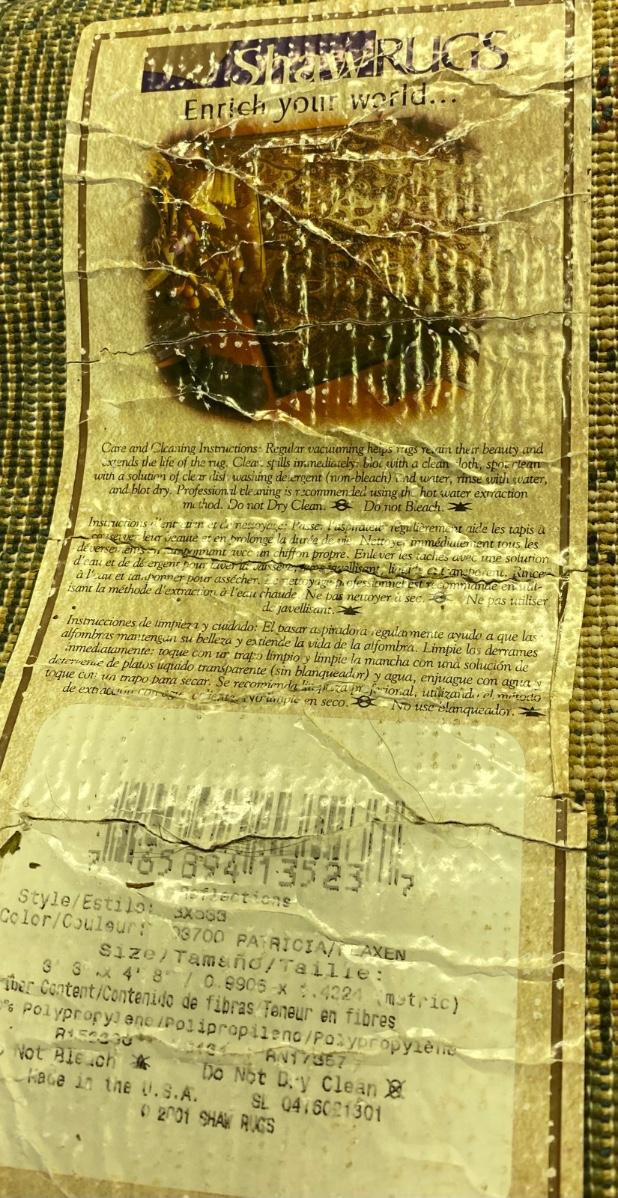 ShawRUGS
Enrich your world...
Care and Cleaning Instructions: Regular vacuuming helps rugs retain their beauty and
extends the life of the rug. Clean spills immediately: blot with a clean cloth, spot clean
with a solution of clear dish washing detergent (non-bleach) and water, rinse with water,
and blot dry. Professional cleaning is recommended using the hot water extraction
method. Do not Dry Clean. Do not Bleach.
Instructions d'entretien et de nettoyage: Passer l'aspirateur régulièrement aide les tapis à
conserver leur beauté et en prolonge la durée de vie. Nettoyer immédiatement tous les
déversements en tamponnant avec un chiffon propre. Enlever les taches avec une solution
d'eau et de détergent pour laver la vaisselle, sans javellisant, liquide et transparent. Rincer
à l'eau et tamponner pour assécher. Le nettoyage professionnel est recommandé en util-
isant la méthode d'extraction à l'eau chaude. Ne pas nettoyer à sec. Ne pas utiliser
de javellisant.
Instrucciones de limpieza y cuidado: El pasar aspiradora regularmente ayuda a que las
alfombras mantengan su belleza y extiende la vida de la alfombra. Limpie los derrames
inmediatamente: toque con un trapo limpio y limpie la mancha con una solución de
detergente de platos líquido transparente (sin blanqueador) y agua, enjuague con agua y
toque con un trapo para secar. Se recomienda limpieza profesional, utilizando el método
de extracción con agua caliente. No limpie en seco. No use blanqueador.
7 65894 13523 7
Reflections
Style/Estilo:
Color/Couleur: 03700 PATRICIA/FLAXEN
Size/Tamaño/Taille:
3' 3" X 4' 8" / 0.9906 x 1.4224 (metric)
Fiber Content/Contenido de fibras/Teneur en fibres
% Polypropylene/Polipropileno/Polypropylène
Not Bleach Do Not Dry Clean
Made in the U.S.A. SL 0416021301
© 2001 SHAW RUGS